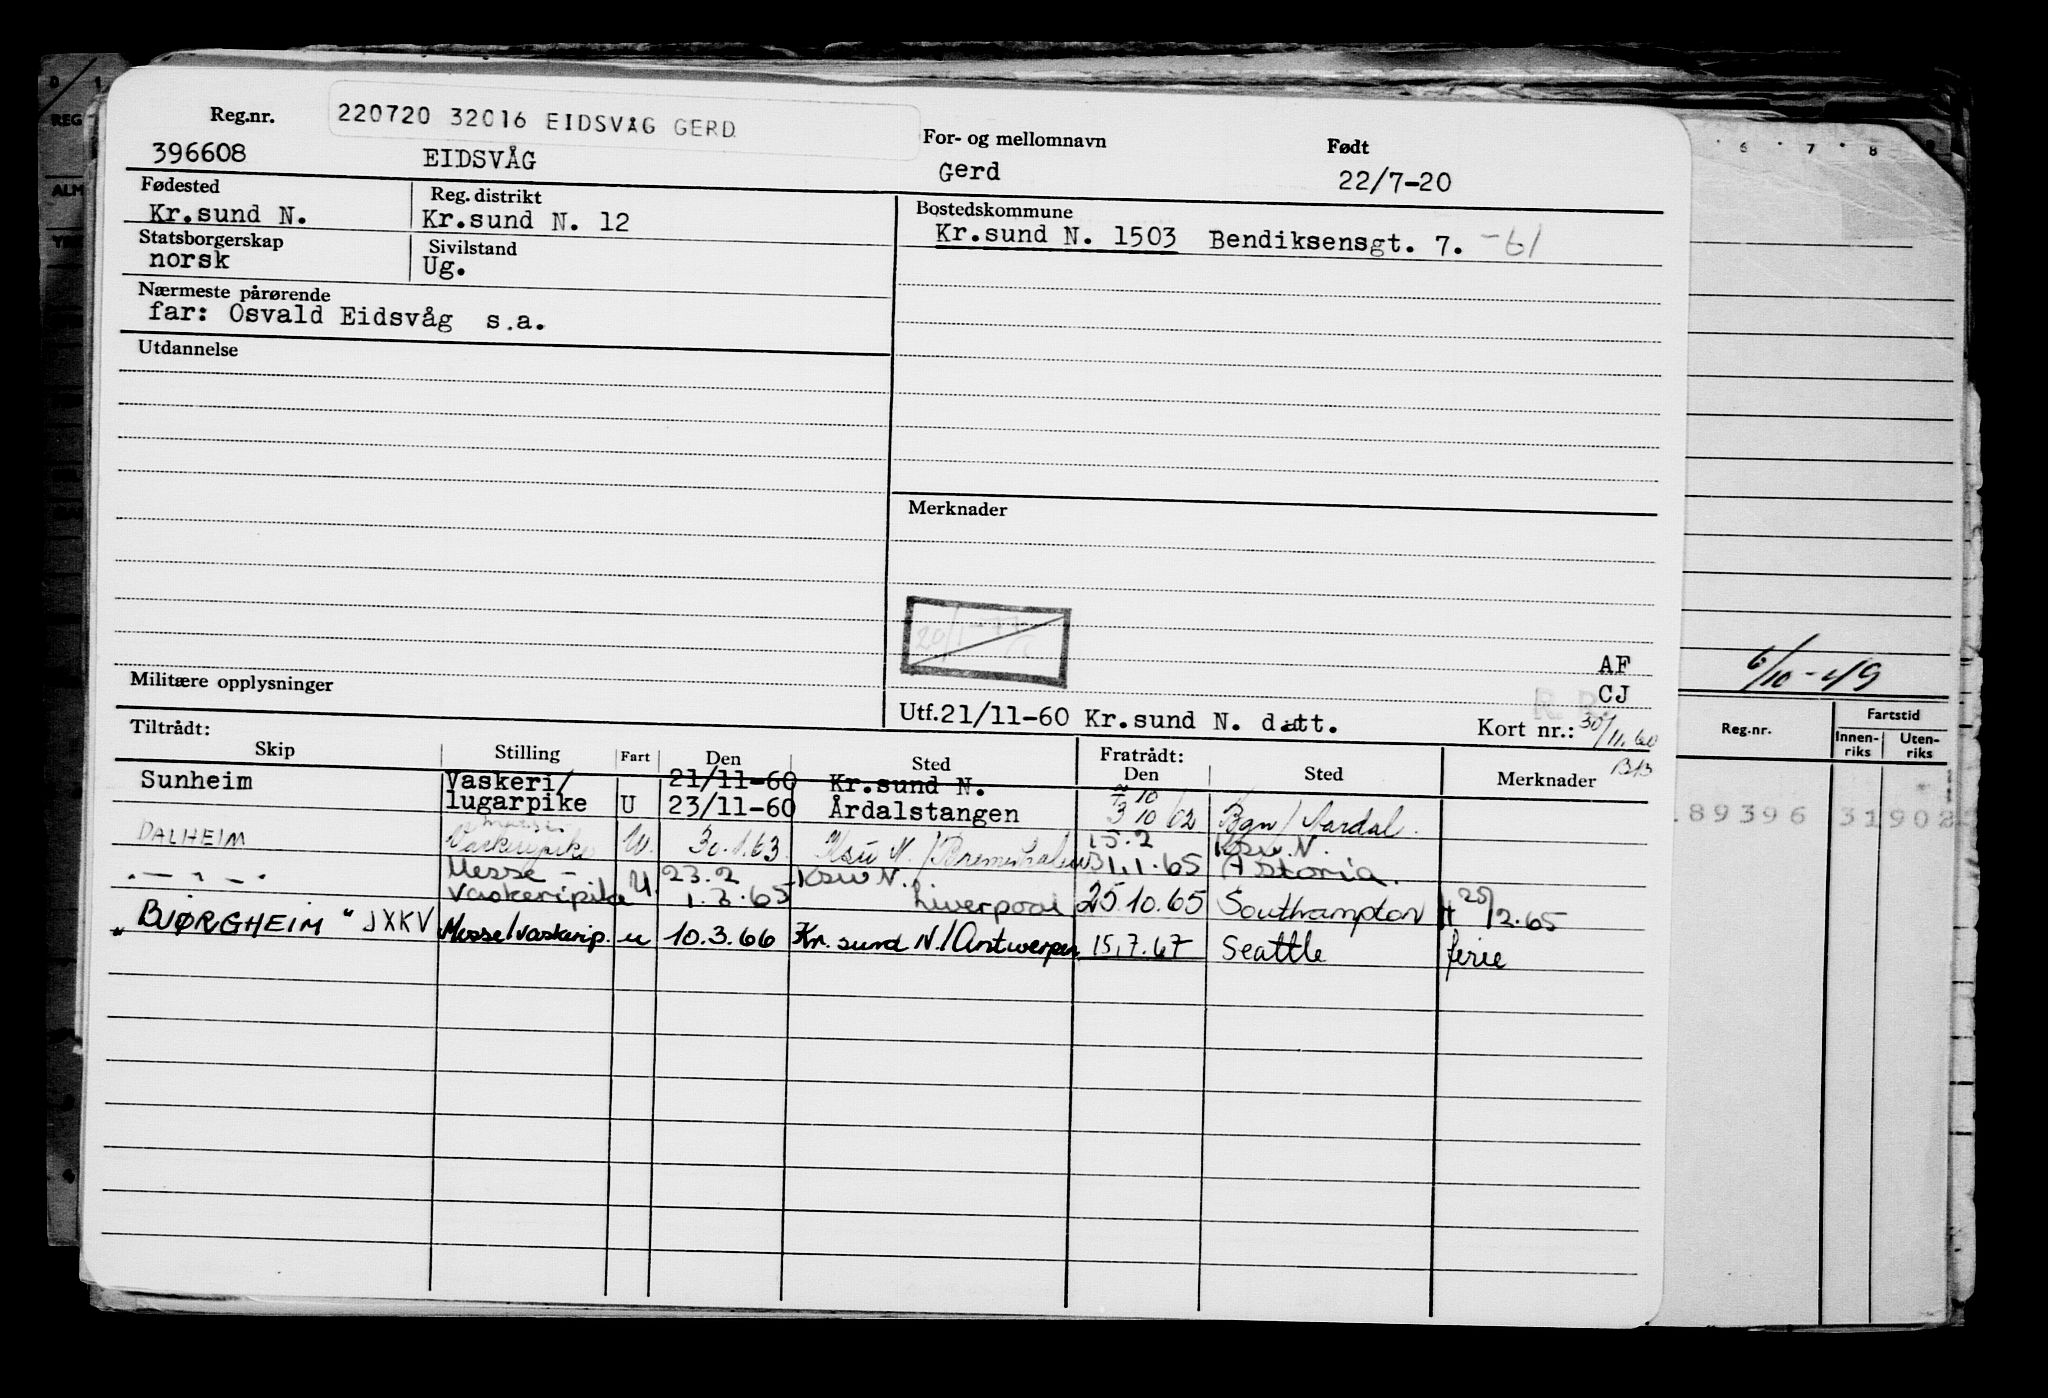 220720 32016 EIDSVÅG GERD
Reg.nr. For- og mellomnavn Født
396608 EIDSVÅG Gerd 22/7-20
Fødested Reg. distrikt Bostedskommune
Kr.sund N. Kr.sund N. 12 Kr.sund N. 1503 Bendiksensgt. 7. -61
Statsborgerskap Sivilstand
norsk Ug.
Nærmeste pårørende
far: Osvald Eidsvåg s.a.
Utdannelse
Merknader
AF
CJ
Militære opplysninger
Utf.21/11-60 Kr.sund N. datt. Kort nr.: 30/11.60
Tiltrådt: Fratrådt:
Skip Stilling Fart Den Sted Den Sted Merknader
Sunheim Vaskeri/ 21/11-60 Kr.sund N. 10
lugarpike U 23/11-60 Årdalstangen 3 10 62 Bgn/Aardal.
DALHEIM Messe
Vaskeripike U. 30.1.63. Ksu N./Bremerhaven 15.2 Ksu. N.
31.1.65 Astoria.
.-"-. Messe- 23.2 Ksu N.
vaskeripike U. 1.3.65 Liverpool 25.10.65 Southampton H 25/12.65
"BJØRGHEIM" JXKV Messe/vaskerip. u 10.3.66 Kr.sund N./Antwerpen 15.7.67 Seattle ferie
6 7 8
6/10-49
Reg.nr. Fartstid
Innen-riks Uten-riks
89396 31902
REG
ALM